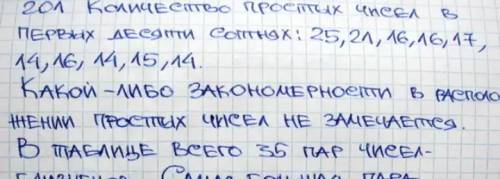 201 Количество простых чисел в
первых десяти сотнях: 25, 21, 16, 16, 17,
14, 16, 14, 15, 14.
Какой-либо закономерности в располо
жении простых чисел не замечается.
В таблице всего 35 пар чисел-
близнецов. Самая большая пара